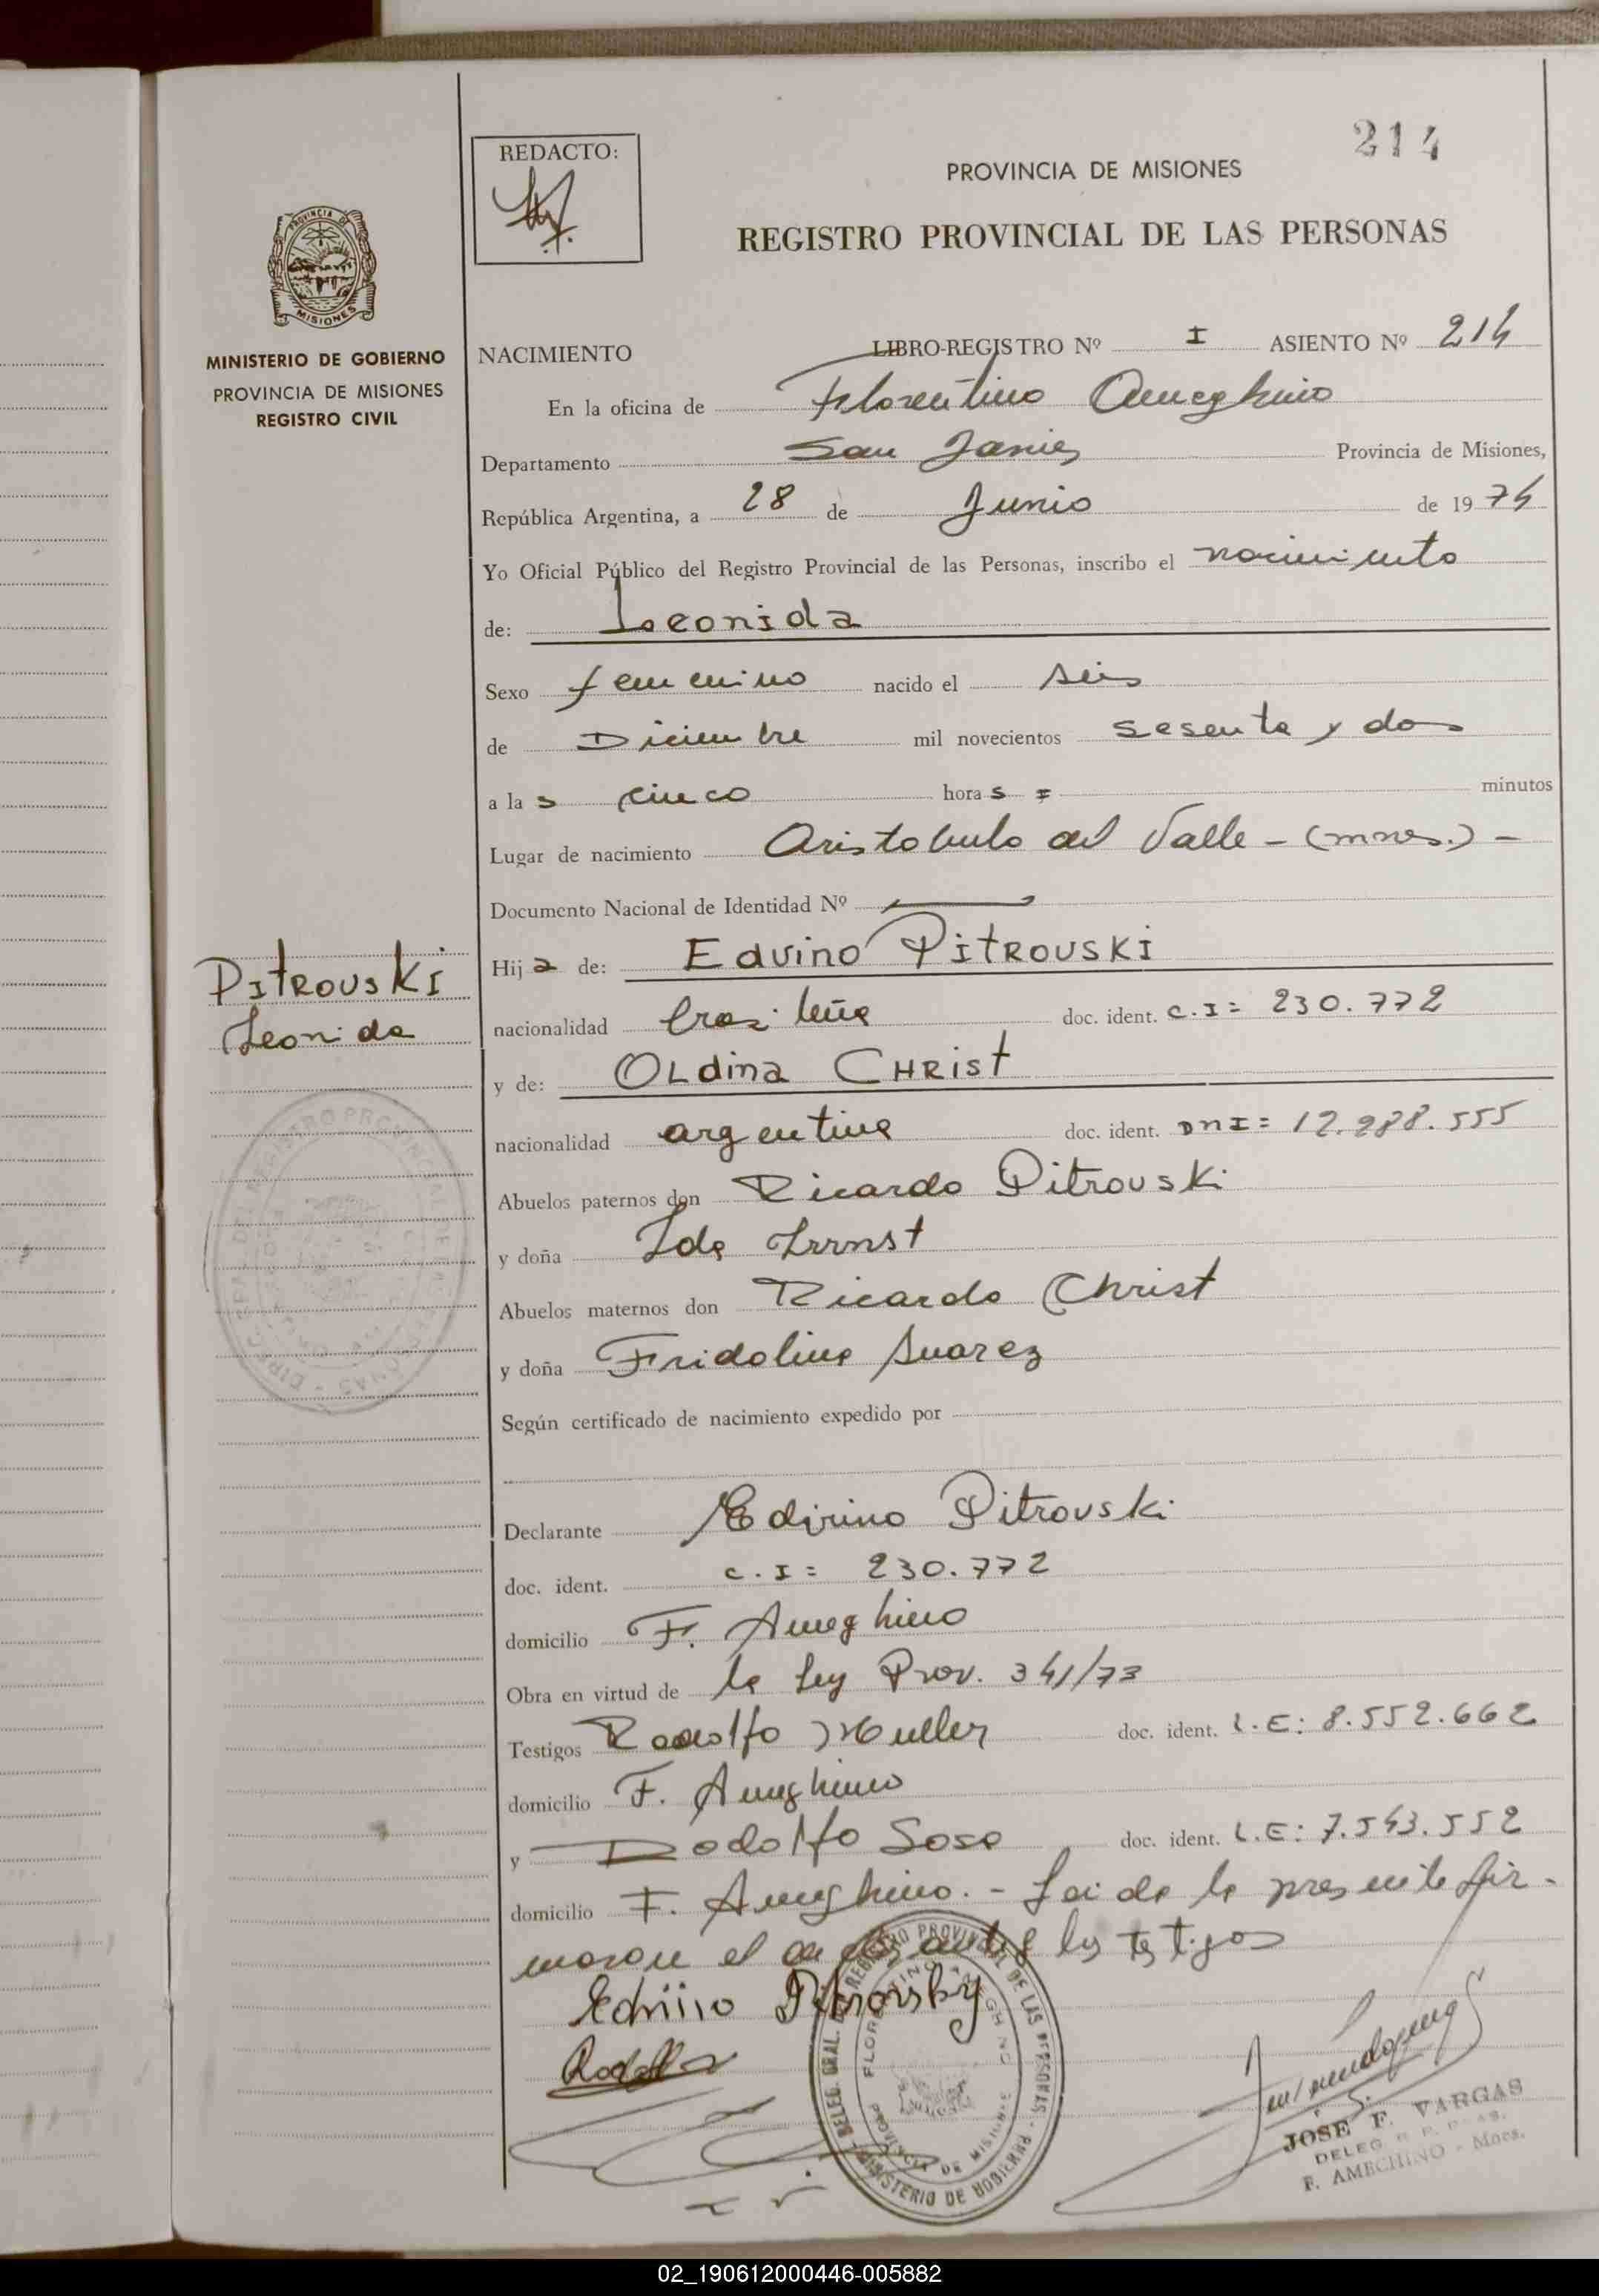 214
REDACTO:
PROVINCIA DE MISIONES
REGISTRO PROVINCIAL DE LAS PERSONAS
PROVINCIA DE
MISIONES
MINISTERIO DE GOBIERNO
PROVINCIA DE MISIONES
REGISTRO CIVIL
NACIMIENTO LIBRO-REGISTRO Nº I ASIENTO Nº 214
En la oficina de Florentino Ameghino
Departamento San Javier Provincia de Misiones,
República Argentina, a 28 de Junio de 1974
Yo Oficial Público del Registro Provincial de las Personas, inscribo el nacimiento
de: Leonida
Sexo femenino nacido el seis
de Diciembre mil novecientos sesenta y dos
a las cinco horas = minutos
Lugar de nacimiento Aristobulo del Valle - (mnes.) -
Documento Nacional de Identidad Nº
Hija de: Edvino PITROVSKI
PITROVSKI
Leonida
nacionalidad brasileña doc. ident. C.I = 230.772
y de: OLdina CHRIST
nacionalidad argentina doc. ident. DNI = 12.288.555
Abuelos paternos don Ricardo Pitrovski
y doña Ida
Abuelos maternos don Ricardo Christ
y doña Fridolina Suarez
Según certificado de nacimiento expedido por
Declarante Edvino Pitrovski
doc. ident. C.I = 230.772
domicilio F. Ameghino
Obra en virtud de la Ley Prov. 341/73
Testigos Rodolfo Muller doc. ident. L.E: 8.552.662
domicilio F. Ameghino
y Dodolfo Sosa doc. ident. L.E: 7.543.552
domicilio F. Ameghino. - Leida la presente fir-
maron el los testigos
Edvino Pitrovsky
DELEG. GRAL. DEL REGISTRO PROVINCIAL DE LAS PERSONAS - MINISTERIO DE GOBIERNO
FLORENTINO AMEGHINO
PROVINCIA DE MISIONES
JOSE F. VARGAS
DELEG R. P. P.
F. AMEGHINO - Mnes.
02_190612000446-005882